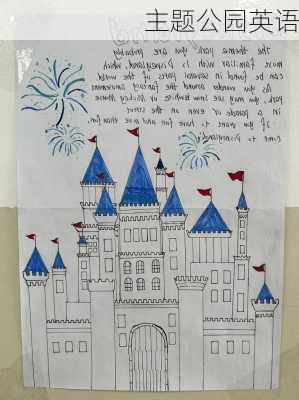 主题公园英语
The theme park you are probably
more familiar with is Disneyland, which
can be found in several parts of the world.
As you wander around the fantasy amusement
park, you may see Snow White or Mickey Mouse
in a parade or even on the street.
If you want to have fun and more than fun,
come to Disneyland!